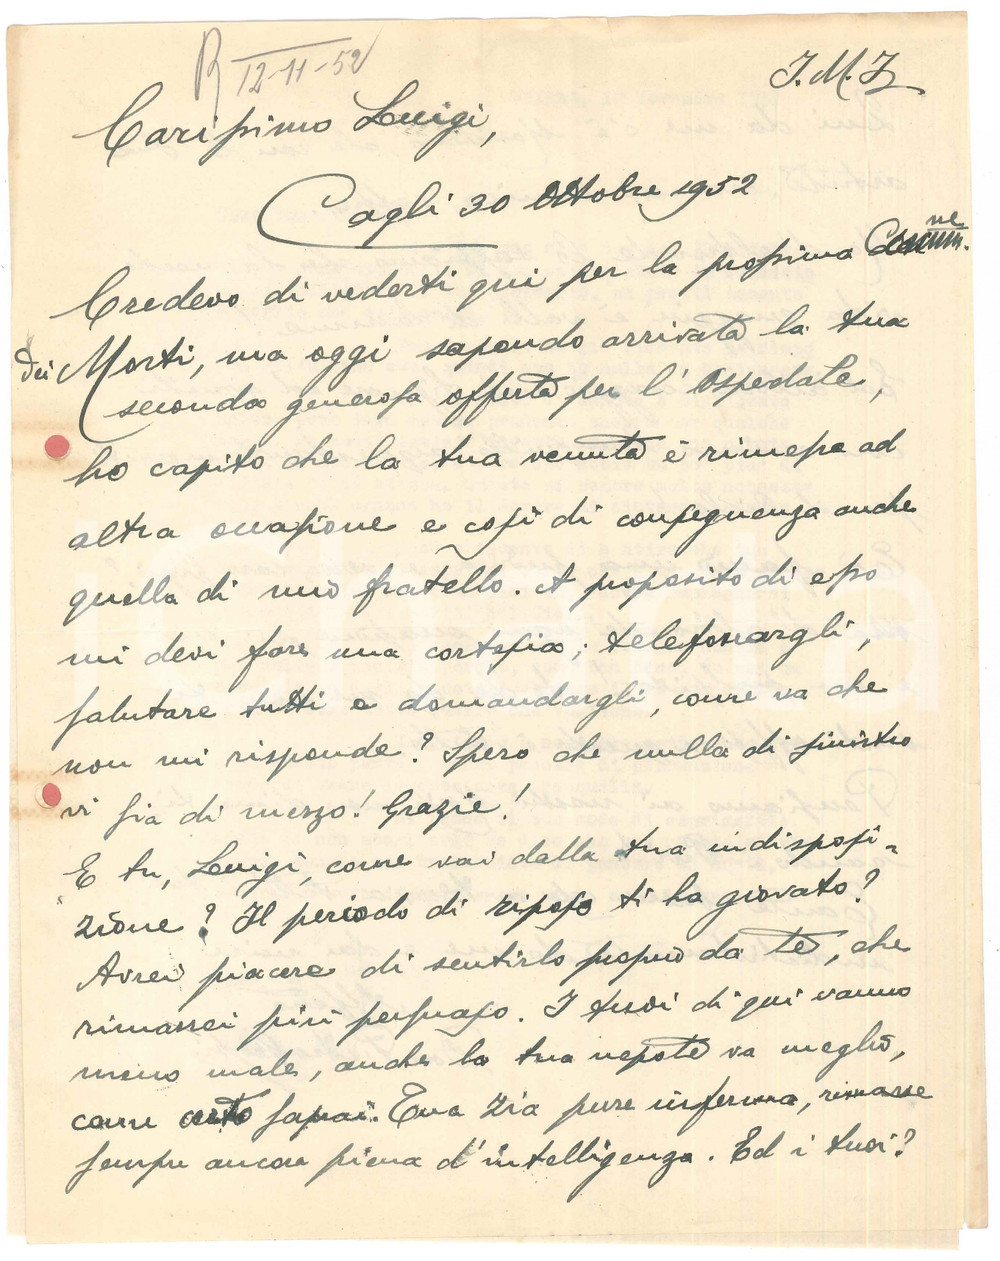 R 12-11-52
J.M.J.
Carissimo Luigi,
Cagli 30 Ottobre 1952
Credevo di vederti qui per la prossima Comm.ne
dei Morti, ma oggi sapendo arrivata la tua
seconda generosa offerta per l'Ospedale,
ho capito che la tua venuta è rimessa ad
altra occasione e così di conseguenza anche
quella di mio fratello. A proposito di esso
mi devi fare una cortesia; telefonargli,
salutare tutti e domandargli, come va che
non mi risponde? Spero che nulla di sinistro
vi sia di mezzo! Grazie!
E tu, Luigi, come vai dalla tua indisposi=
zione? Il periodo di riposo ti ha giovato?
Avrei piacere di sentirlo proprio da te, che
rimarrei più persuaso. I tuoi di qui vanno
meno male, anche la tua nepote va meglio,
come certo saprai. Tua Zia pure inferma, rimasse
sempre ancora piena d'intelligenza. Ed i tuoi?